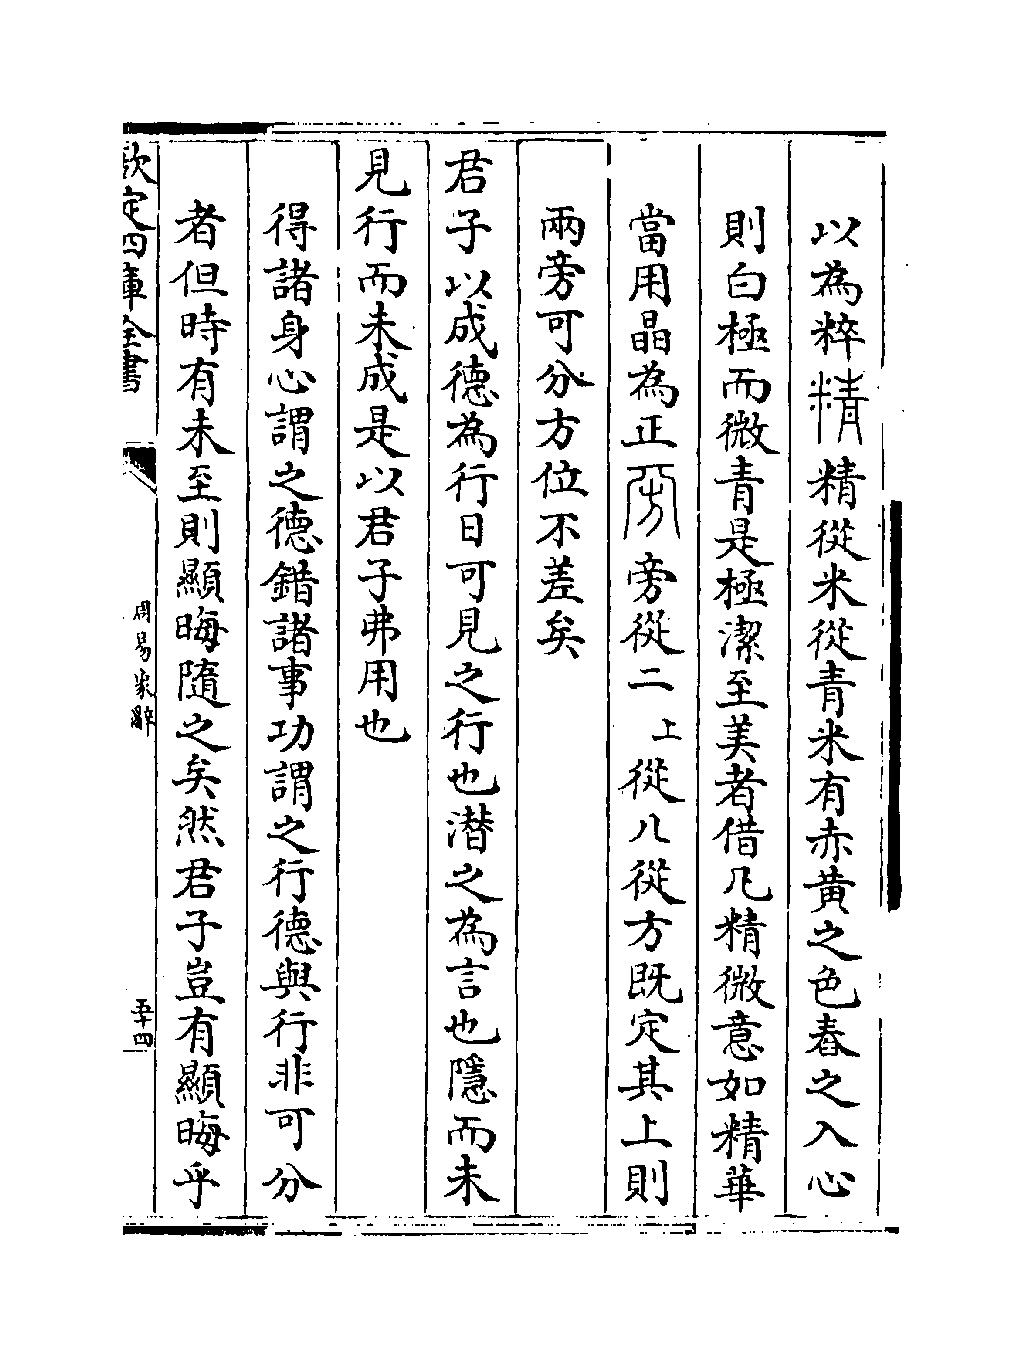 以為粹精精從米從青米有赤黄之色舂之入心
則白極而微青是極潔至美者借凡精微意如精華
當用晶為正㫄旁從二上從八從方既定其上則
兩旁可分方位不差矣
君子以成德為行日可見之行也潛之為言也隱而未
見行而未成是以君子弗用也
得諸身心謂之德錯諸事功謂之行德與行非可分
者但時有未至則顯晦隨之矣然君子豈有顯晦乎
欽定四庫全書
周易象辭
五十四